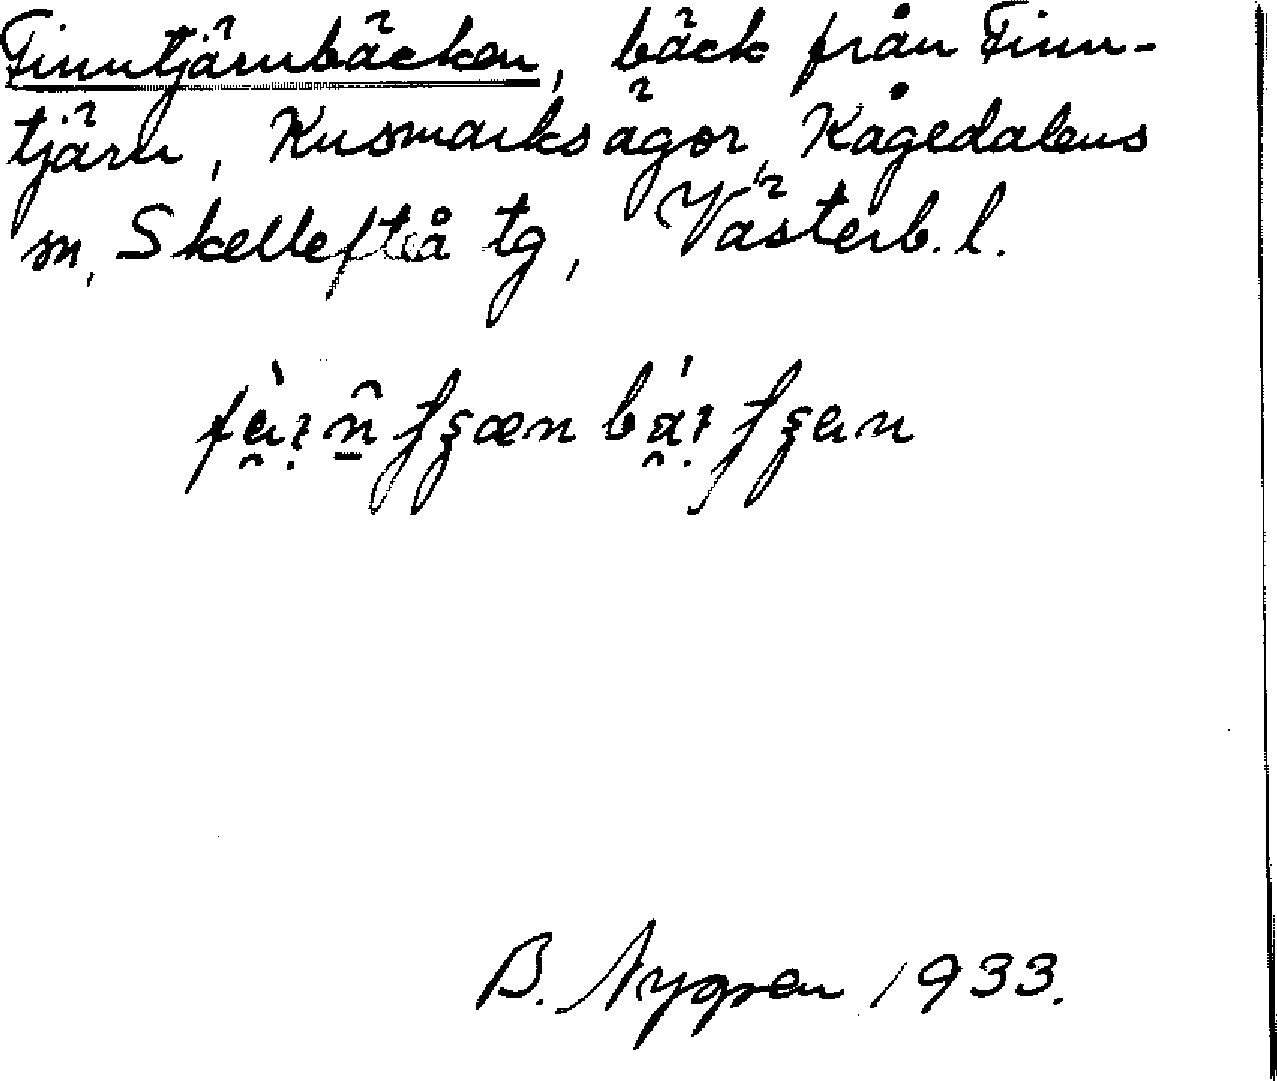 Finntjärnbäcken, bäck från Finn-
tjärn, Kusmarks ägor, Kågedalens
sn, Skellefteå tg, Västerb. l.
B. Nygren 1933.